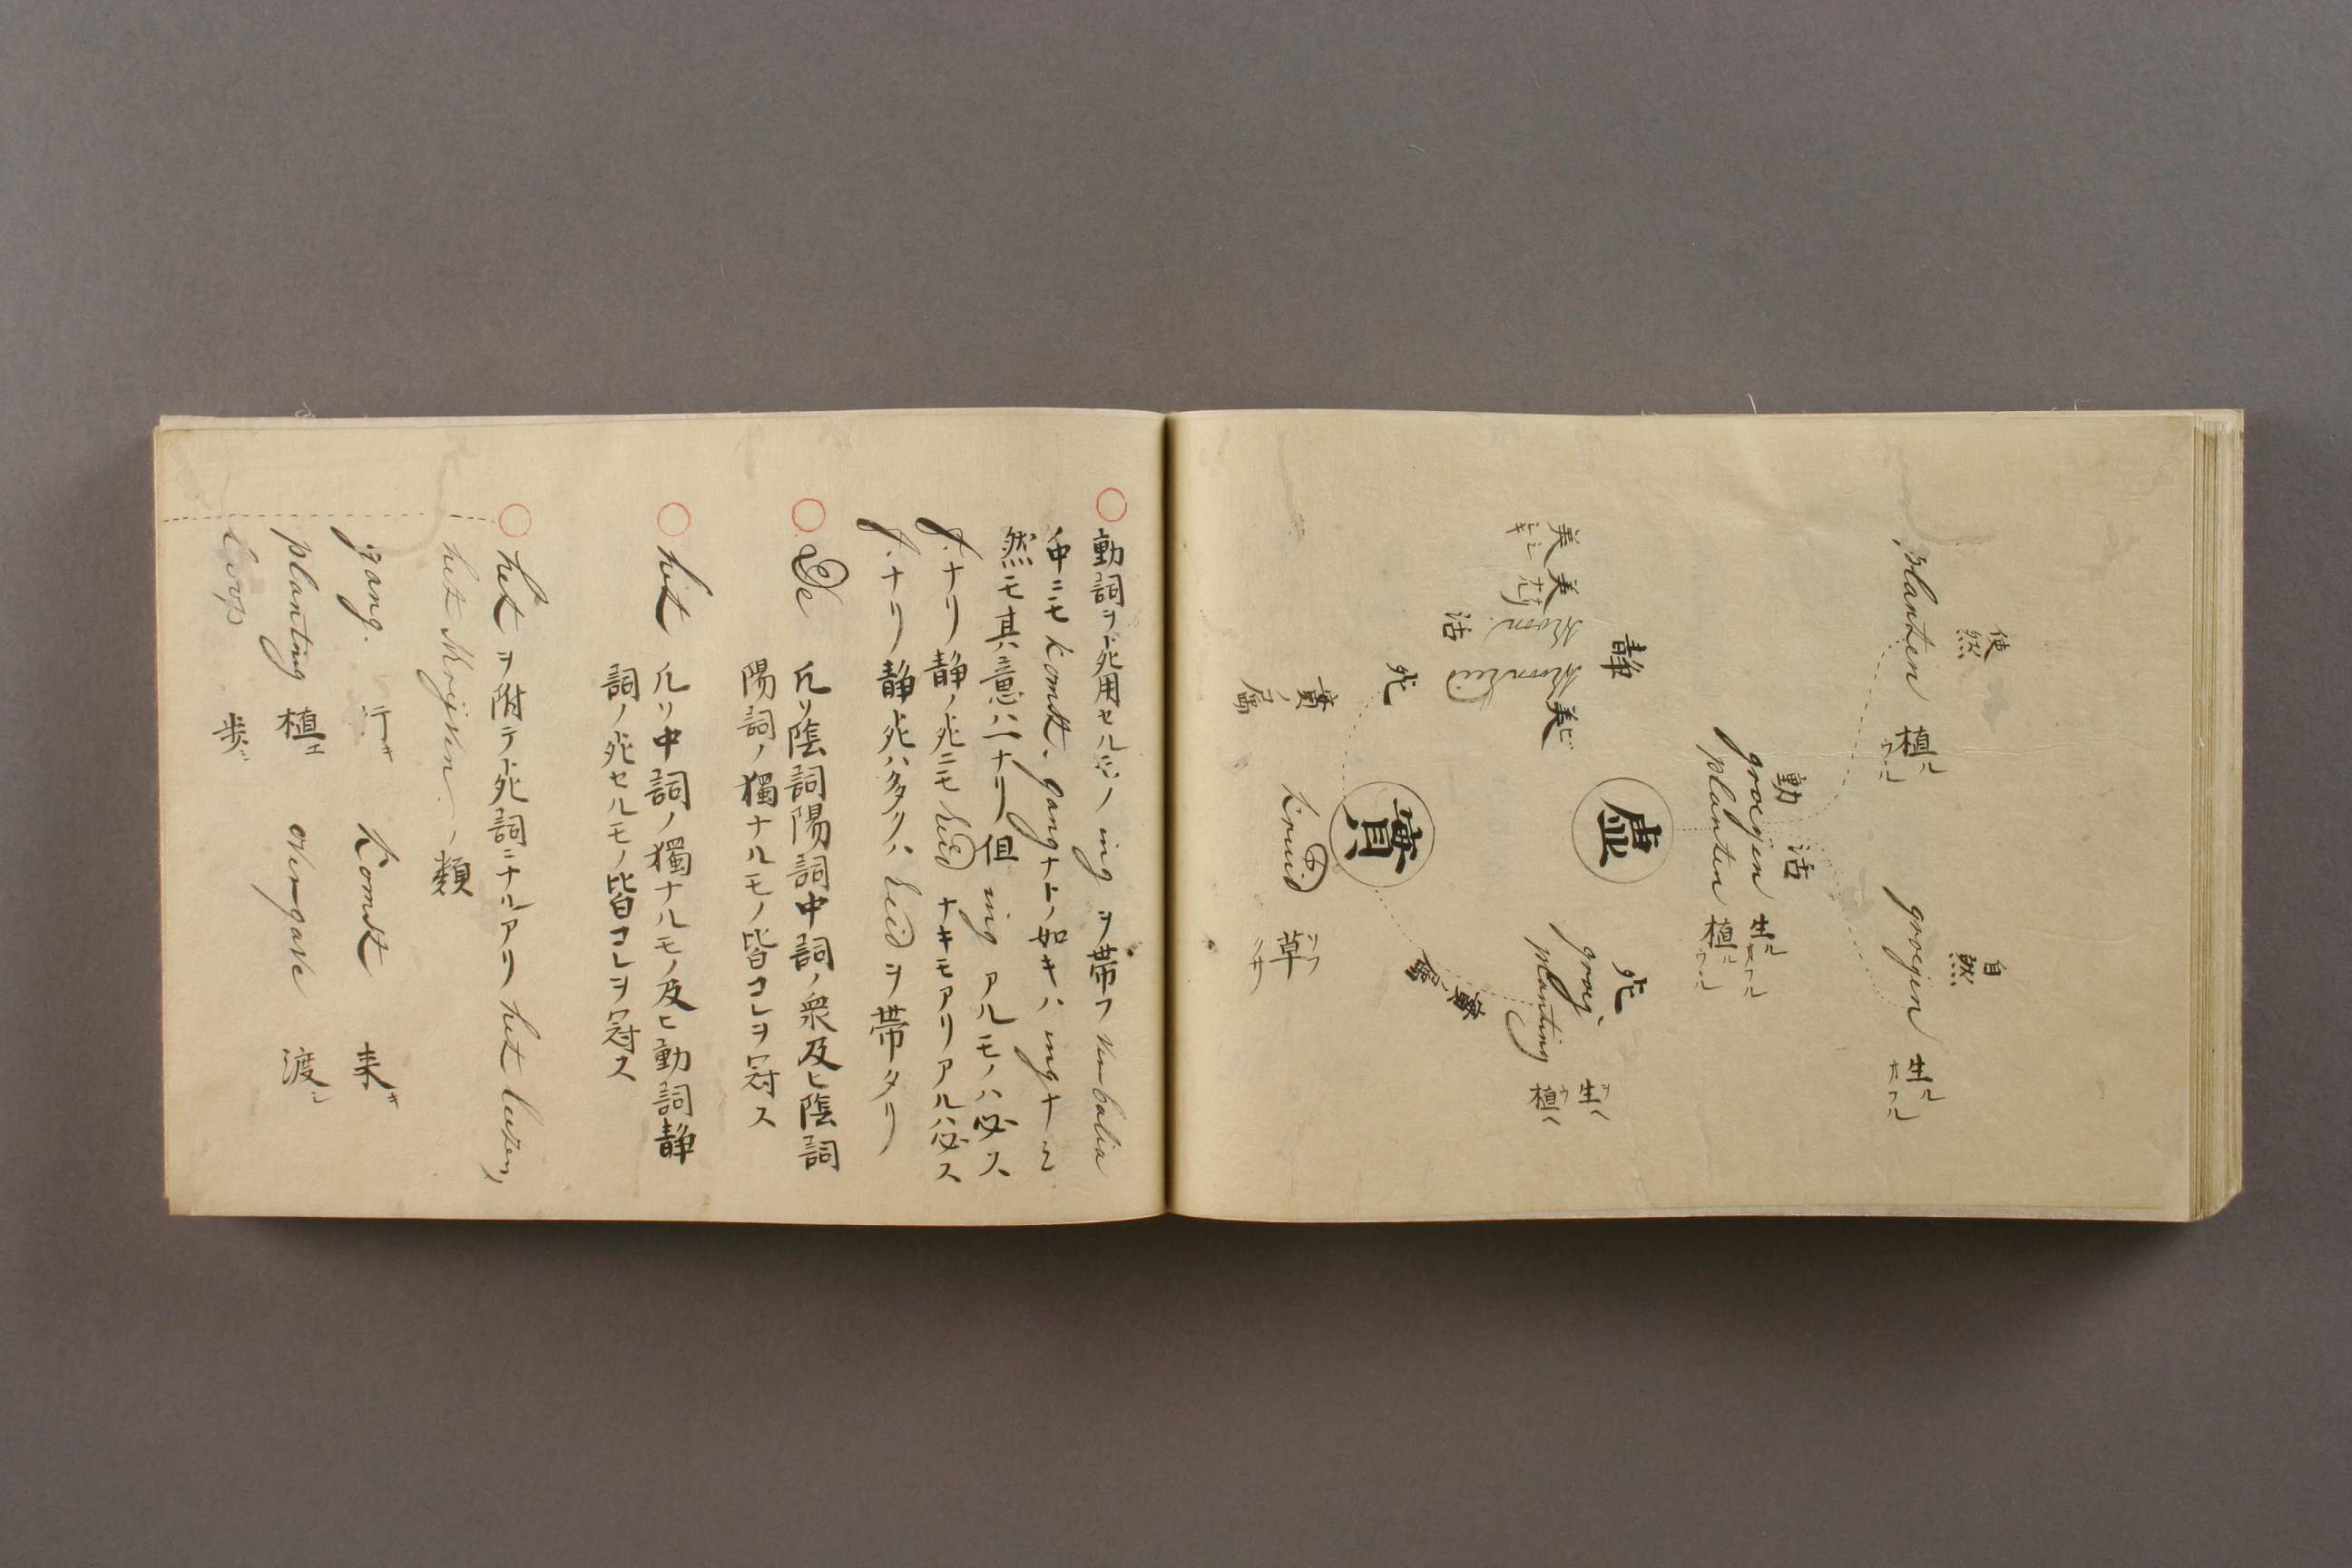 使然
planten 植ル ウル
自然
groeijen 生ル オフル
動 活
groeijen 生ル ヲフル
planten 植ル ウル
死
groeij 生ヘ
planting 植ヘ
虚
静
美
美
schoon
schoonheid 美
活
死
實ノ属
實
實ノ属
kruid 草 クサ
動詞ヲ死用セルモノ ing ヲ帯フ verbalia
中ニモ komst. gang ナトノ如キハ ing ナシ
然モ其意ハ一ナリ但 ing アルモノハ必ス
f. ナリ静ノ死ニモ heid ナキモアリアルハ必ス
f. ナリ静死ハ多クハ heid ヲ帯タリ
De 凡リ陰詞陽詞中詞ノ衆及ヒ陰詞
陽詞ノ獨ナルモノ皆コレヲ冠ス
het 凡リ中詞ノ獨ナルモノ及ヒ動詞静
詞ノ死セルモノ皆コレヲ冠ス
het ヲ附テ死詞ニナルアリ het lezen,
het schrijven ノ類
gang. 行キ komst 来キ
planting 植エ overgave 渡シ
loop 歩ミ